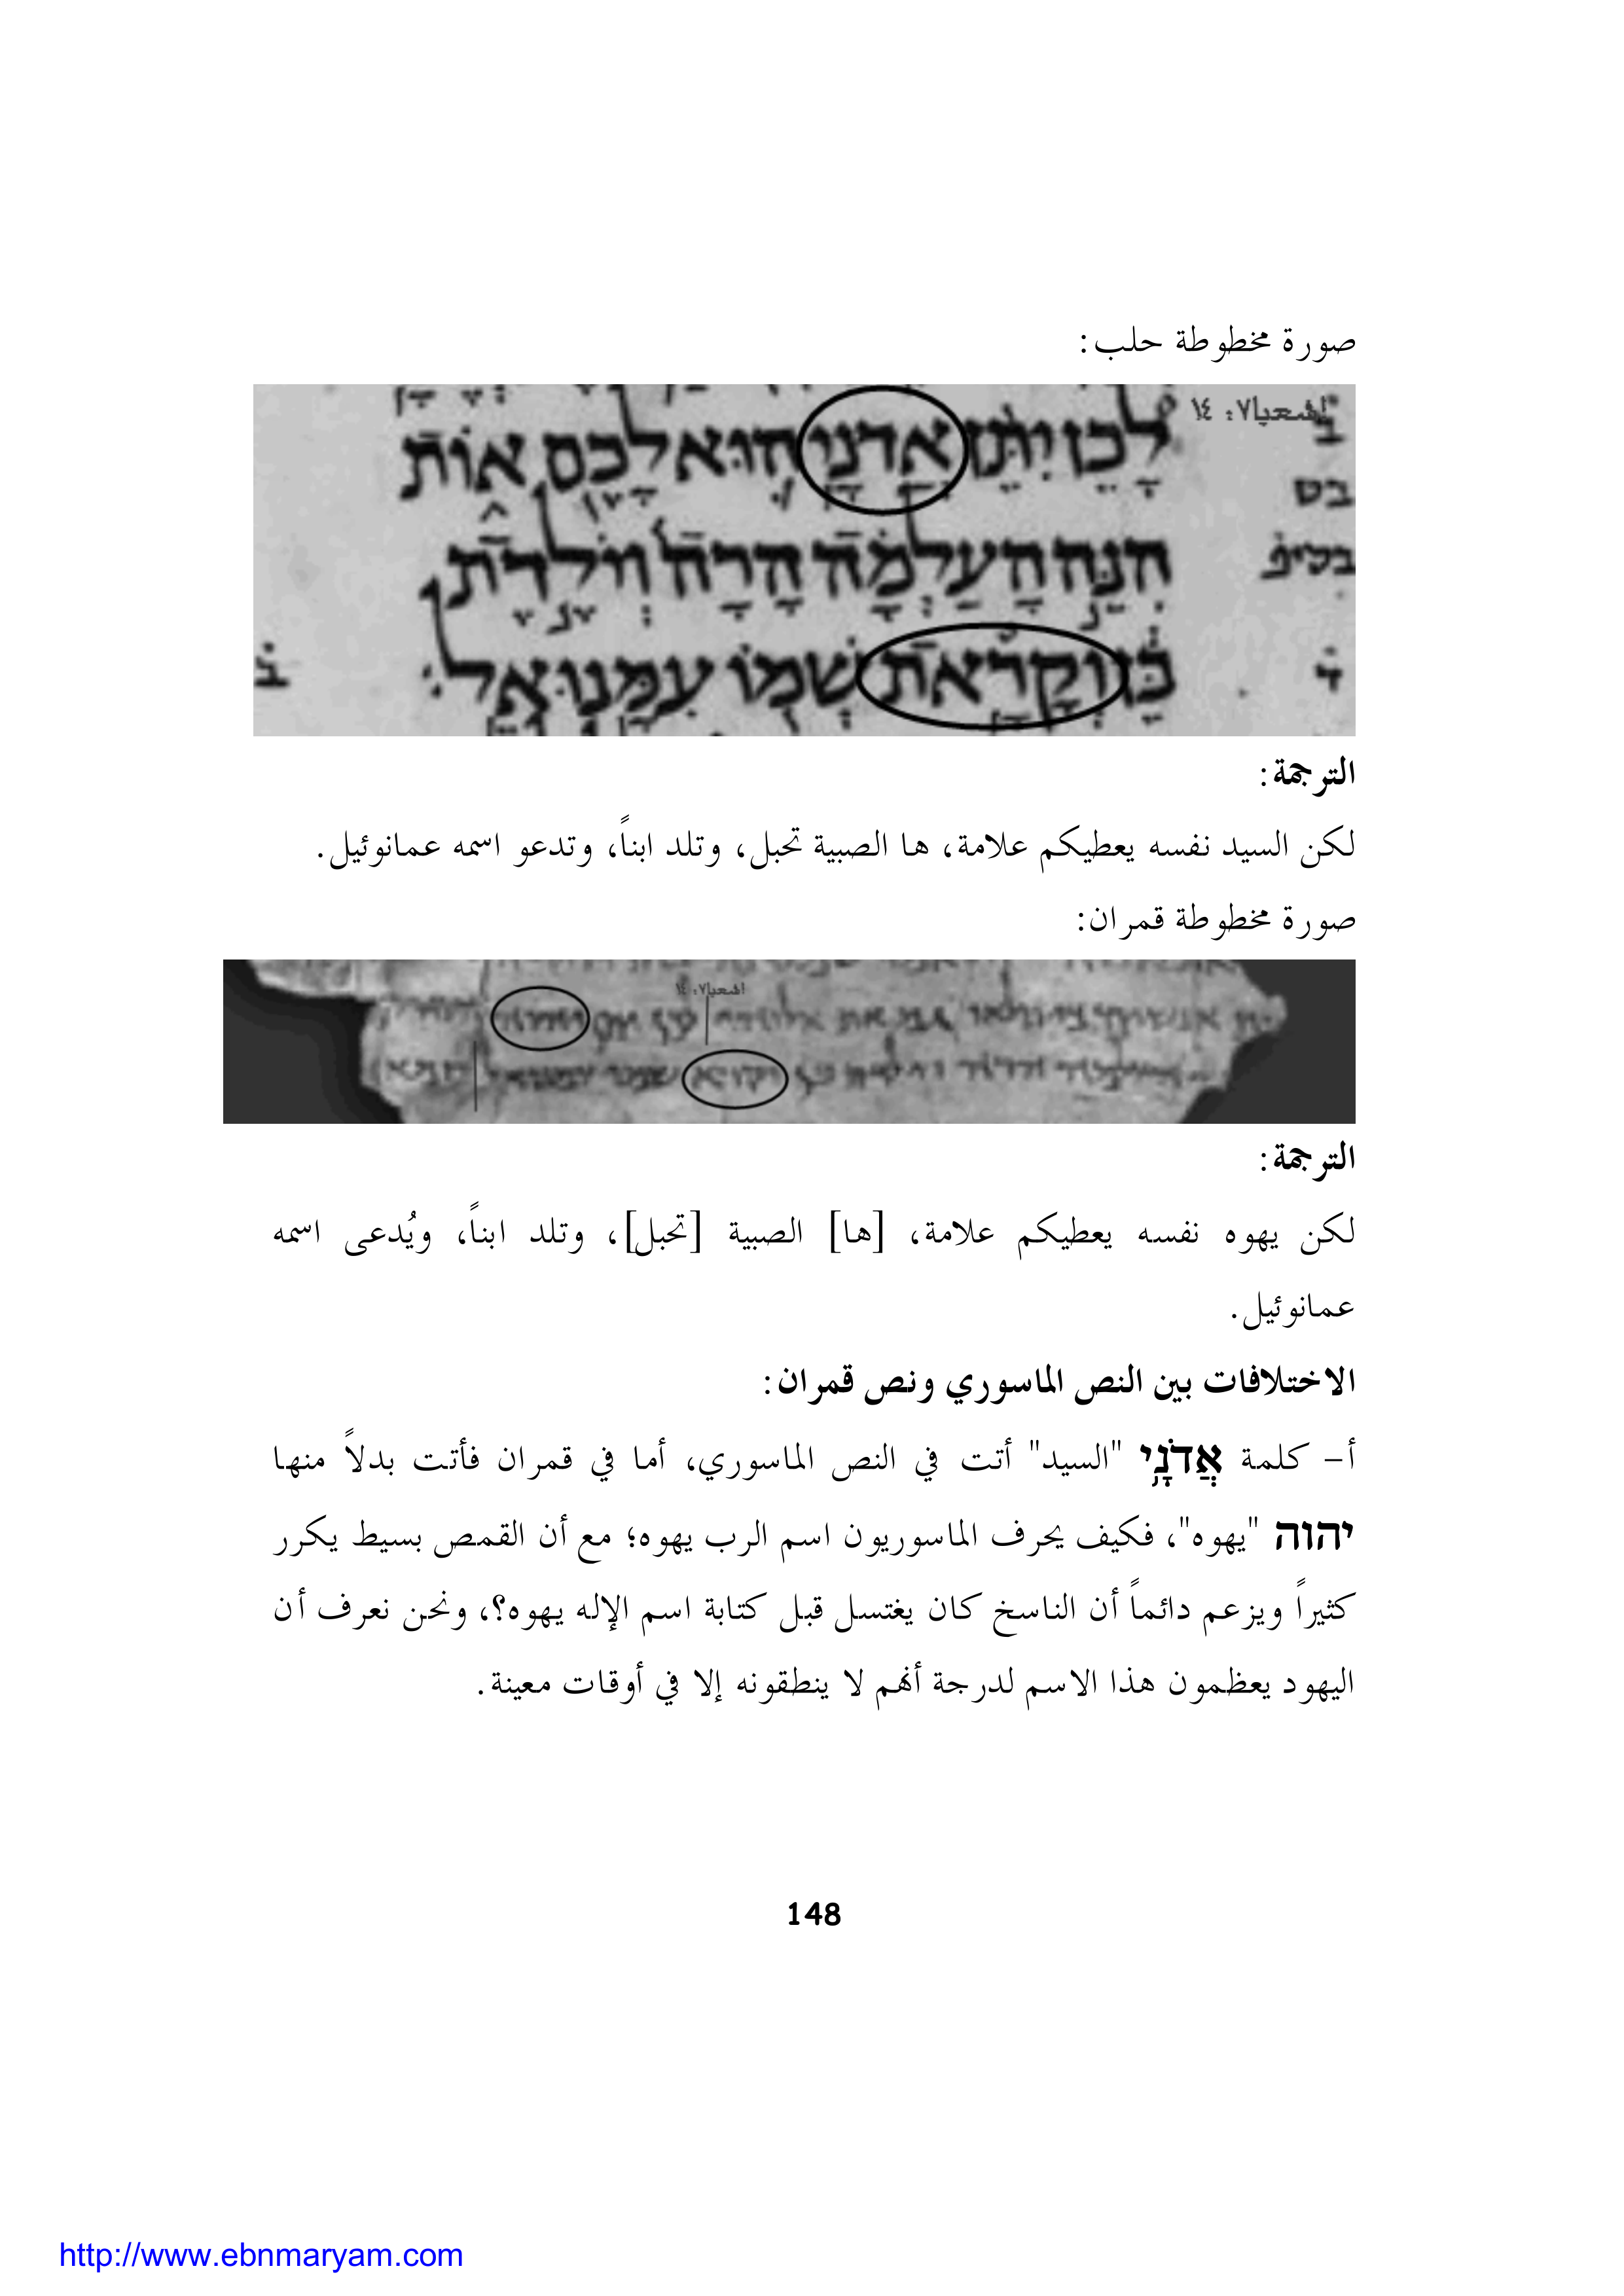 صورة مخطوطة حلب:
اشعيا٧: ١٤
לָכֵן יִתֵּן אֲדֹנָי הוּא לָכֶם אוֹת
הִנֵּה הָעַלְמָה הָרָה וְיֹלֶדֶת
בֵּן וְקָרָאת שְׁמוֹ עִמָּנוּאֵל׃
الترجمة:
لكن السيد نفسه يعطيكم علامة، ها الصبية تحبل، وتلد ابناً، وتدعو اسمه عمانوئيل.
صورة مخطوطة قمران:
اشعيا٧: ١٤
الترجمة:
لكن يهوه نفسه يعطيكم علامة، [ها] الصبية [تحبل]، وتلد ابناً، ويُدعى اسمه
عمانوئيل.
الاختلافات بين النص الماسوري ونص قمران:
أ– كلمة אֲדֹנָ֥י "السيد" أتت في النص الماسوري، أما في قمران فأتت بدلاً منها
יהוה "يهوه"، فكيف يحرف الماسوريون اسم الرب يهوه؛ مع أن القمص بسيط يكرر
كثيراً ويزعم دائماً أن الناسخ كان يغتسل قبل كتابة اسم الإله يهوه؟، ونحن نعرف أن
اليهود يعظمون هذا الاسم لدرجة أنهم لا ينطقونه إلا في أوقات معينة.
148
http://www.ebnmaryam.com